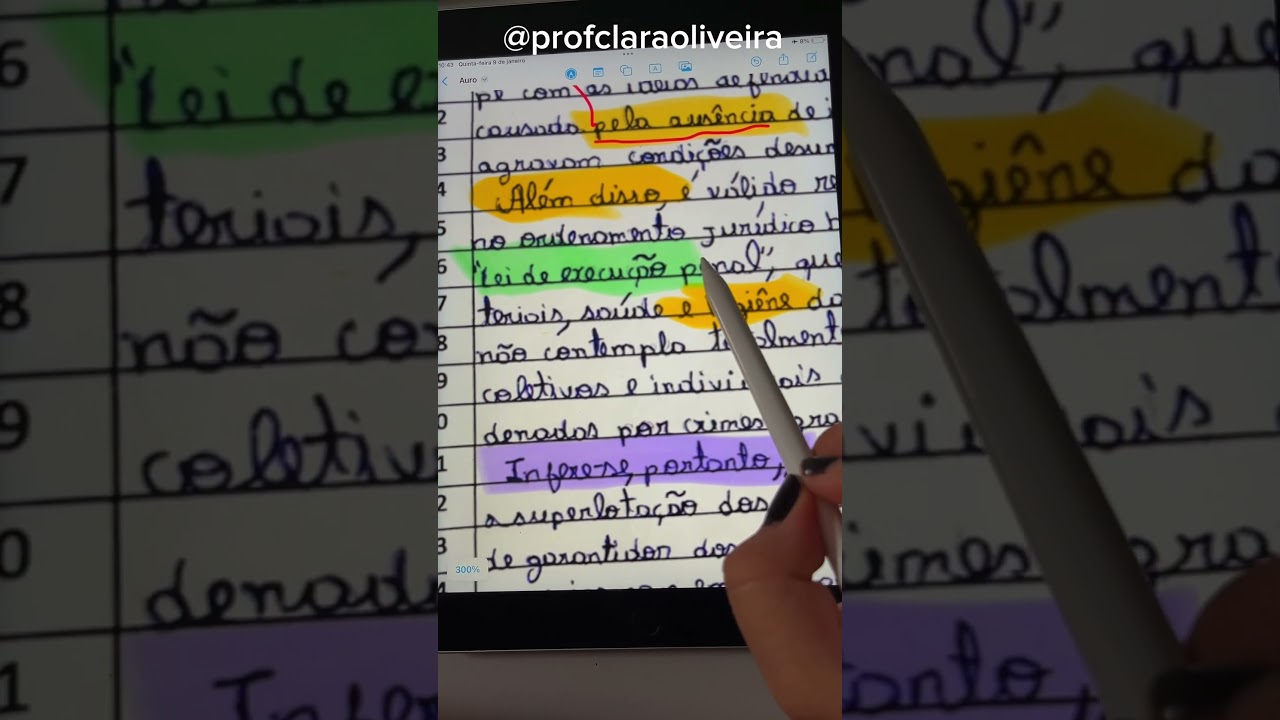 @profclaraoliveira
10:43 Quinta-feira 9 de janeiro
8%
Auro
pe com as ideias defendid
2 causada pela ausência de i
3 agravam condições desum
4 Além disso, é válido re
5 no ordenamento jurídico b
6 "lei de execução penal", que
7 teriais, saúde e higiêne do
8 não contempla totalment
9 coletivos e individuais
0 denados por crimes gra
1 Infere-se, portanto,
2 a superlotação dos
3 de garantidor dos
300%
6 "lei de e
7 teriais,
8 não co
9 coletiv
0 denad
1 Infe
nal", que
igiêne do
talment
ais
rimes gra
tanto,